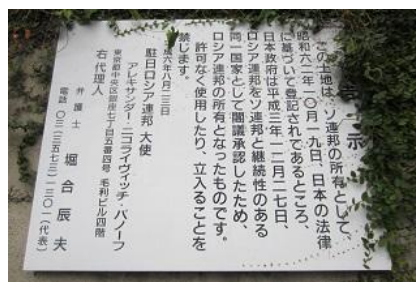 告示
この土地は、ソ連邦の所有として、
昭和六二年一〇月一九日、日本の法律
に基づいて登記されてあるところ、
日本政府は平成三年一二月二七日、
ロシア連邦をソ連邦と継続性のある
同一国家として閣議承認したため、
ロシア連邦の所有となったものです。
許可なく使用したり、立入ることを
禁じます。
成六年八月二三日
駐日ロシア連邦 大使
アレキサンダー・ニコライヴィッチ・パノーフ
東京都中央区銀座七丁目五番四号 毛利ビル四階
右代理人
弁護士 堀合辰夫
電話 〇三(三五七三)一三〇一(代表)